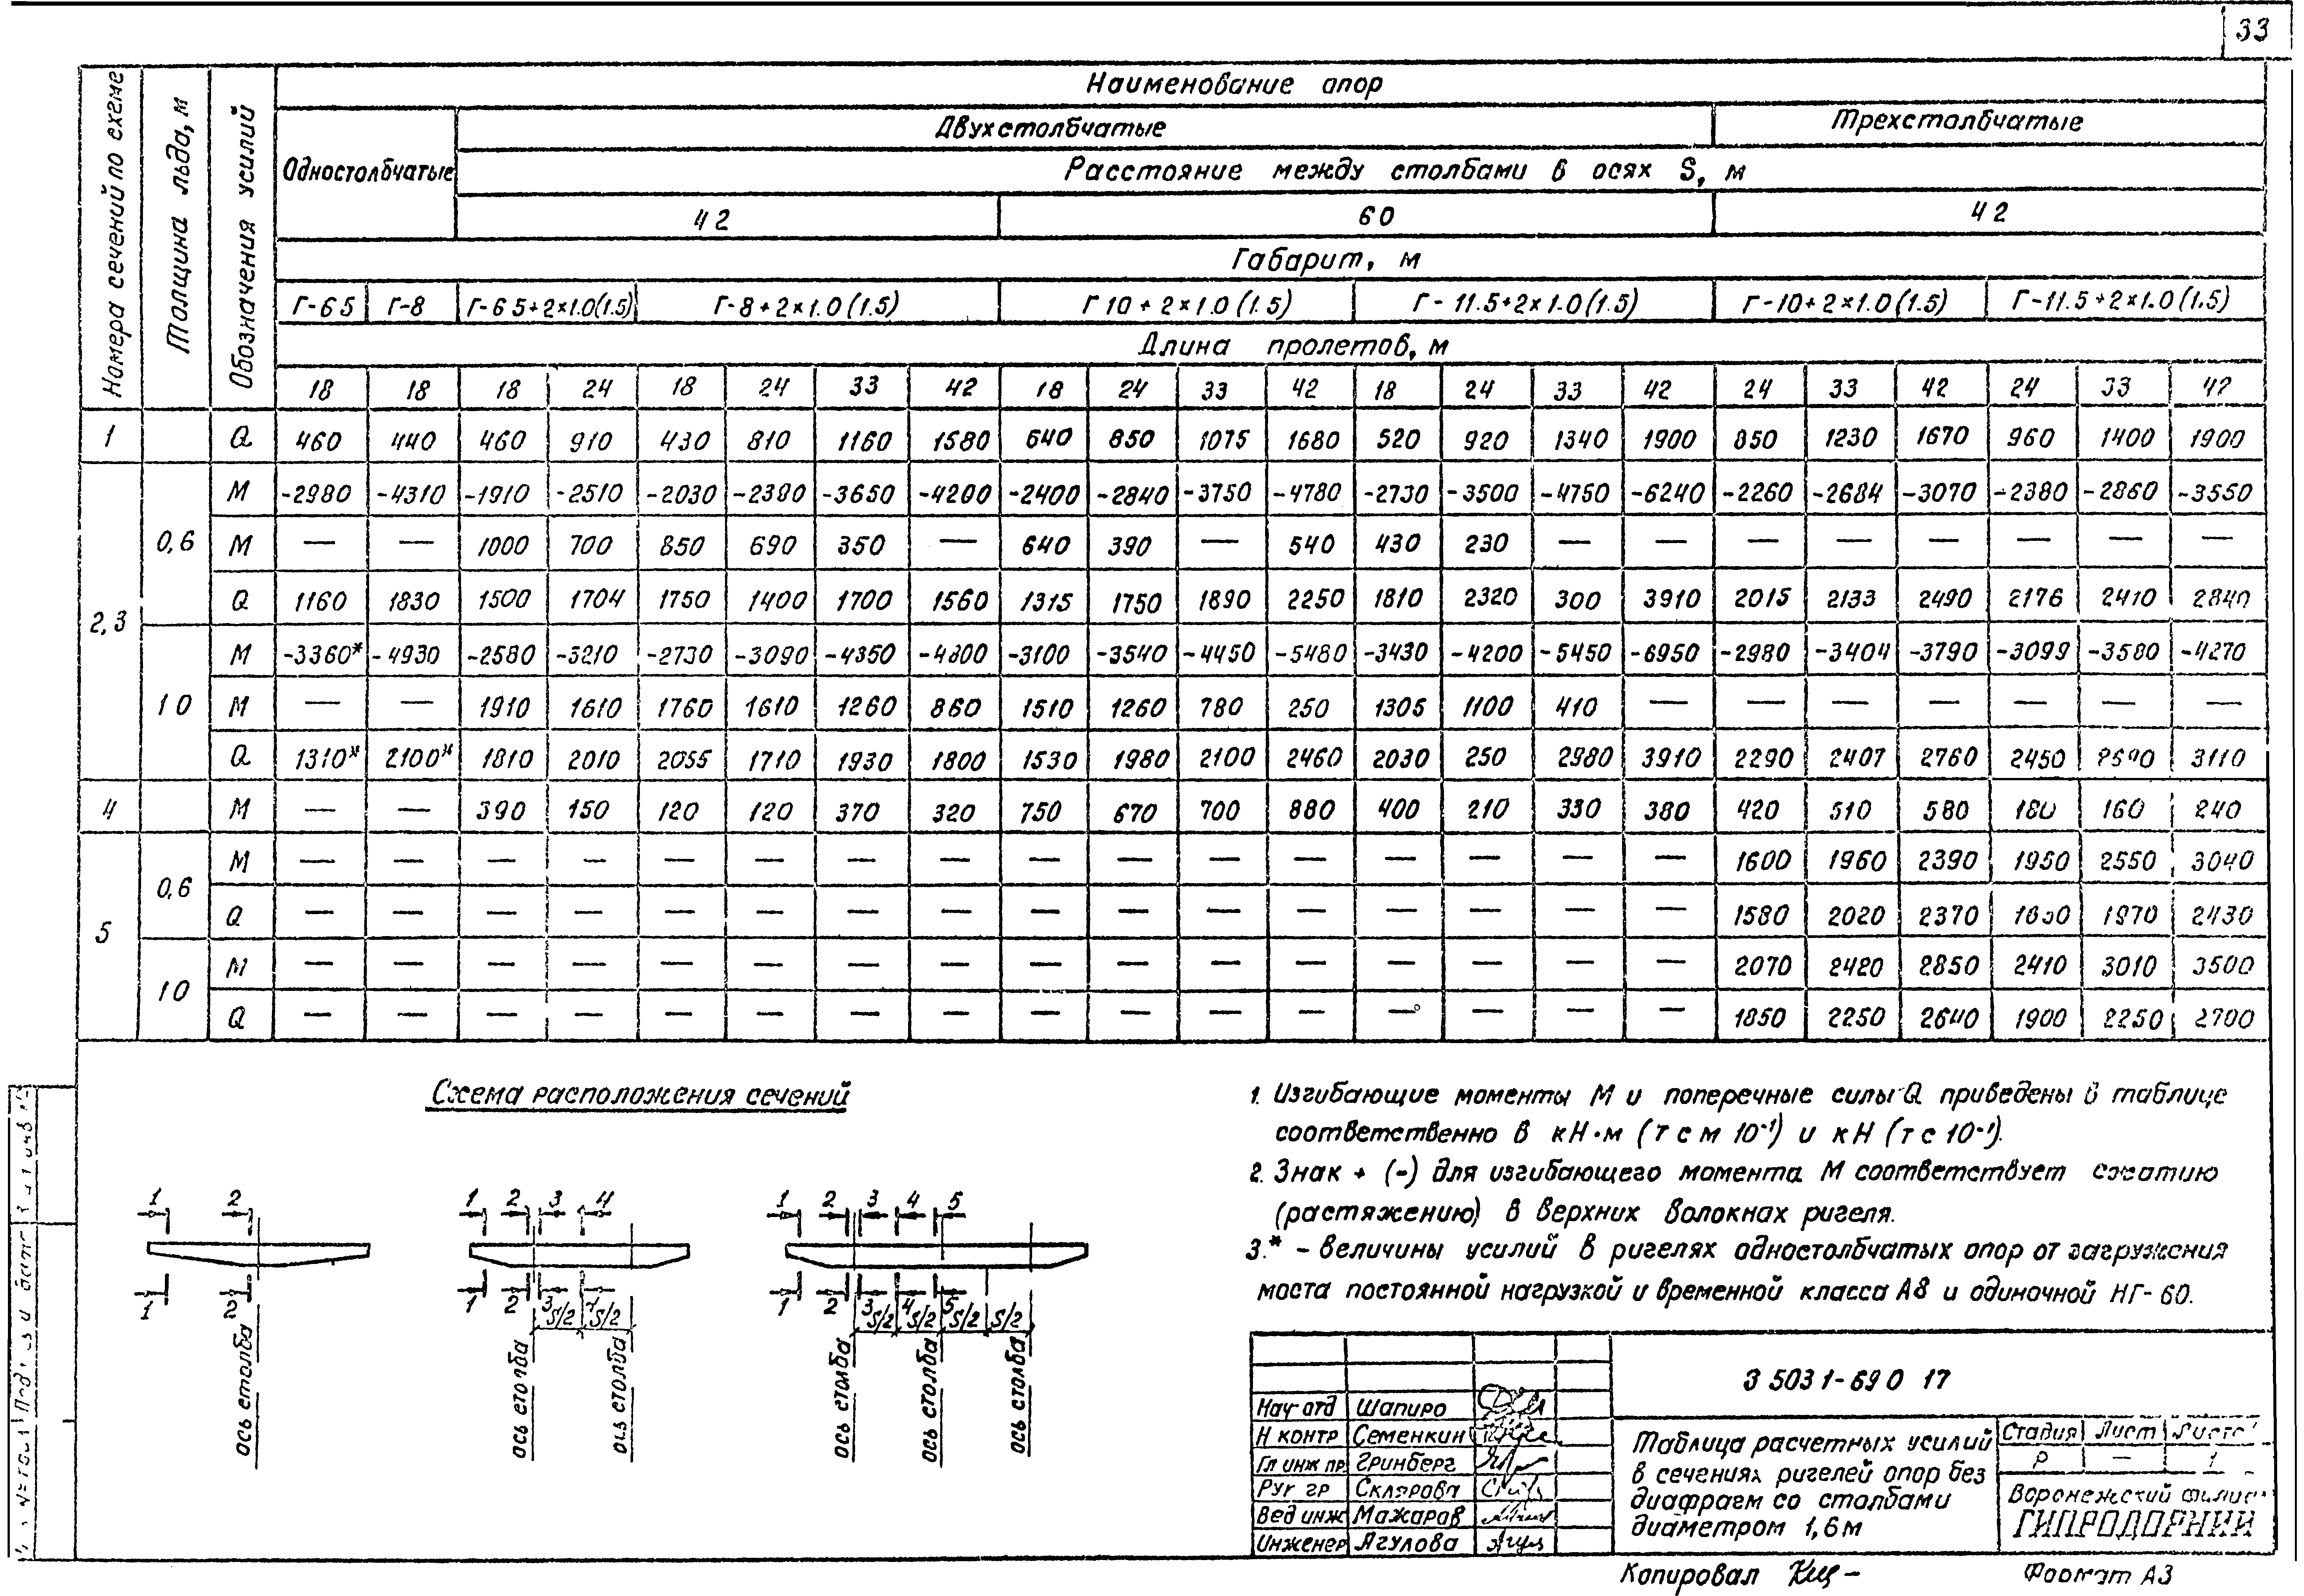 33
Наименование опор
Номера сечений по схеме
Толщина льда, м
Обозначения усилий
Одностолбчатые
Двухстолбчатые
Трехстолбчатые
Расстояние между столбами в осях S, м
42 60 42
Габарит, м
Г-65 Г-8 Г-65+2×1.0(1.5) Г-8+2×1.0(1.5) Г10+2×1.0(1.5) Г-11.5+2×1.0(1.5) Г-10+2×1.0(1.5) Г-11.5+2×1.0(1.5)
Длина пролетов, м
18 18 18 24 18 24 33 42 18 24 33 42 18 24 33 42 24 33 42 24 33 42
1 Q 460 440 460 910 430 810 1160 1580 640 850 1075 1680 520 920 1340 1900 850 1230 1670 960 1400 1900
2,3 0,6 M -2980 -4310 -1910 -2510 -2030 -2390 -3650 -4200 -2400 -2840 -3750 -4780 -2730 -3500 -4750 -6240 -2260 -2684 -3070 -2380 -2860 -3550
M — — 1000 700 850 690 350 — 640 390 — 540 430 230 — — — — — — — —
Q 1160 1830 1500 1704 1750 1400 1700 1560 1315 1750 1890 2250 1810 2320 300 3910 2015 2133 2490 2176 2410 2840
10 M -3360* -4930 -2580 -3210 -2730 -3090 -4350 -4800 -3100 -3540 -4450 -5480 -3430 -4200 -5450 -6950 -2980 -3404 -3790 -3099 -3580 -4270
M — — 1910 1610 1760 1610 1260 860 1510 1260 780 250 1305 1100 410 — — — — — — —
Q 1310* 2100* 1810 2010 2055 1710 1930 1800 1530 1980 2100 2460 2030 250 2980 3910 2290 2407 2760 2450 3110
4 M — — 390 150 120 120 370 320 750 670 700 880 400 210 330 380 420 510 580 180 160 240
5 0,6 M — — — — — — — — — — — — — — — — 1600 1960 2390 1950 2550 3040
Q — — — — — — — — — — — — — — — — 1580 2020 2370 1970 2430
10 M — — — — — — — — — — — — — — — — 2070 2420 2850 2410 3010 3500
Q — — — — — — — — — — — — — — — — 1850 2250 2640 1900 2250 2700
Схема расположения сечений
1 2 1 2 3 4 1 2 3 4 5
1 2 1 2 3 4 1 2 3 4 5
S/2 S/2 S/2 S/2 S/2 S/2
ось столба ось столба ось столба ось столба ось столба ось столба
1. Изгибающие моменты М и поперечные силы Q приведены в таблице
соответственно в кН·м (тс м 10⁻¹) и кН (тс 10⁻¹).
2. Знак + (-) для изгибающего момента М соответствует сжатию
(растяжению) в верхних волокнах ригеля.
3.* - величины усилий в ригелях одностолбчатых опор от загружения
моста постоянной нагрузкой и временной класса А8 и одиночной НГ-60.
3 503 1-69 0 17
Нач отд Шапиро
Н контр Семенкин
Гл инж пр. Гринберг
Рук гр Склярова
Вед инж Мажаров
Инженер Ягулова
Таблица расчетных усилий
в сечениях ригелей опор без
диафрагм со столбами
диаметром 1,6м
Стадия Лист
Р — 1
Воронежский
ГИПРОДОРНИИ
Копировал
Формат А3